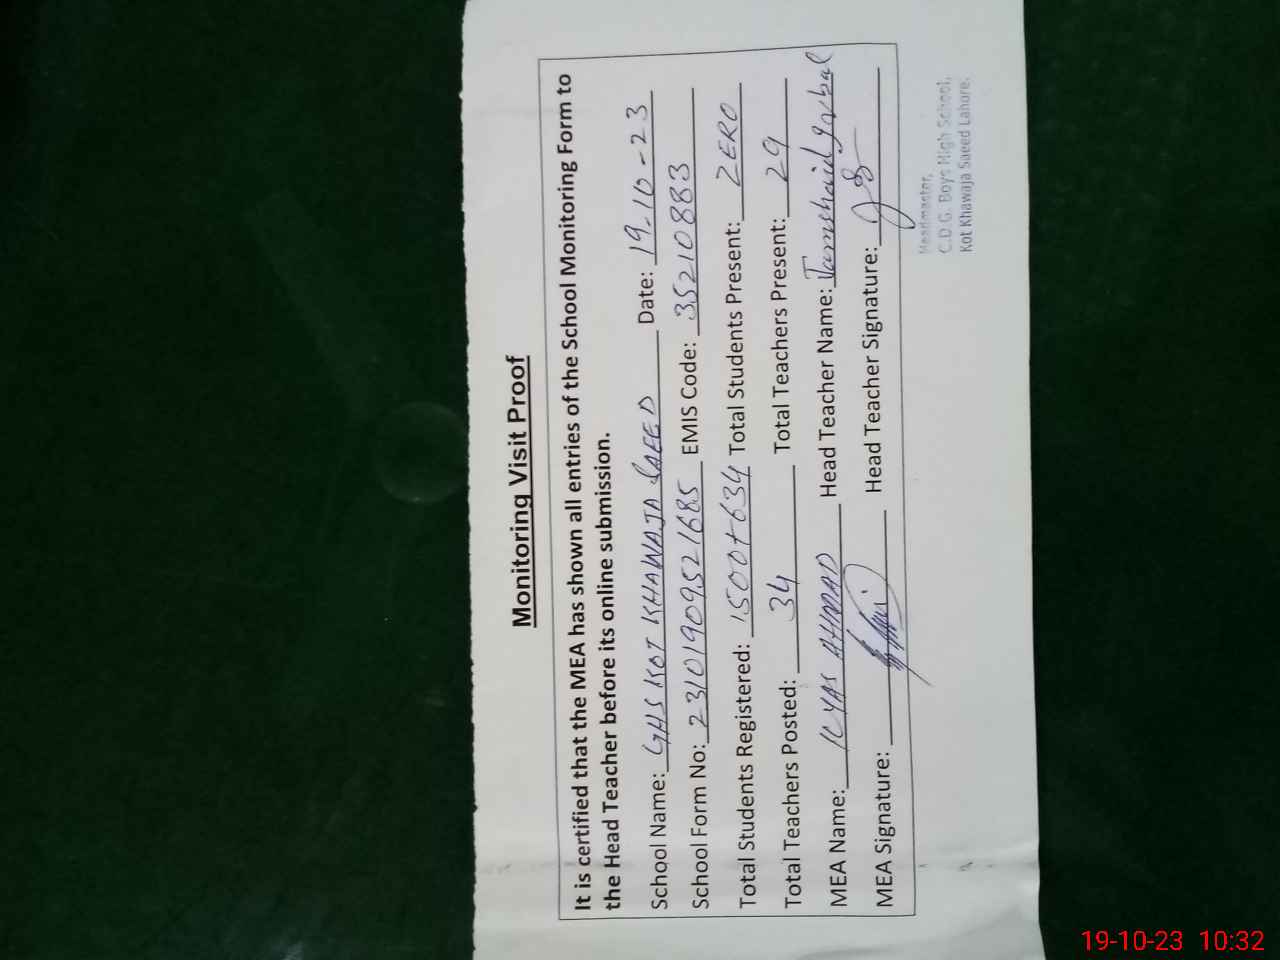 Monitoring Visit Proof
It is certified that the MEA has shown all entries of the School Monitoring Form to
the Head Teacher before its online submission.
School Name: GHS KOT KHAWAJA SAEED Date: 19-10-23
School Form No: 23101909521685 EMIS Code: 35210883
Total Students Registered: 1500+634 Total Students Present: ZERO
Total Teachers Posted: 34 Total Teachers Present: 29
MEA Name: ILYAS AHMAD Head Teacher Name: Jamshaid Iqbal
MEA Signature: Head Teacher Signature:
Headmaster,
C.D.G. Boys High School,
Kot Khawaja Saeed Lahore.
19-10-23 10:32